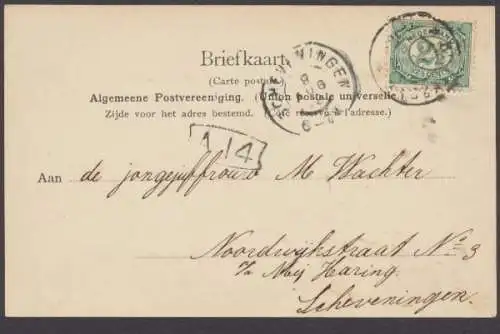 Briefkaart
(Carte postale)
Algemeene Postvereeniging. (Union postale universelle)
Zijde voor het adres bestemd. (Côté réservé à l'adresse.)
SCHEVENINGEN
8
NEDERLAND
2½
CENT
1/4
Aan de jongejuffrouw M Wachter
Noordwijkstraat No 3
Mej Haring
Scheveningen